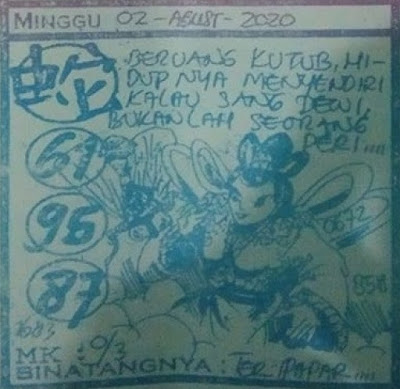 MINGGU 02 - AGUST - 2020
BERUANG KUTUB, HI-
DUP NYA MENYENDIRI
KALAU SANG DEWI,
BUKANLAH SEORANG
PERI....
蛇
61
96
87
0672
1683
MK : 0/3
BINATANGNYA : TER